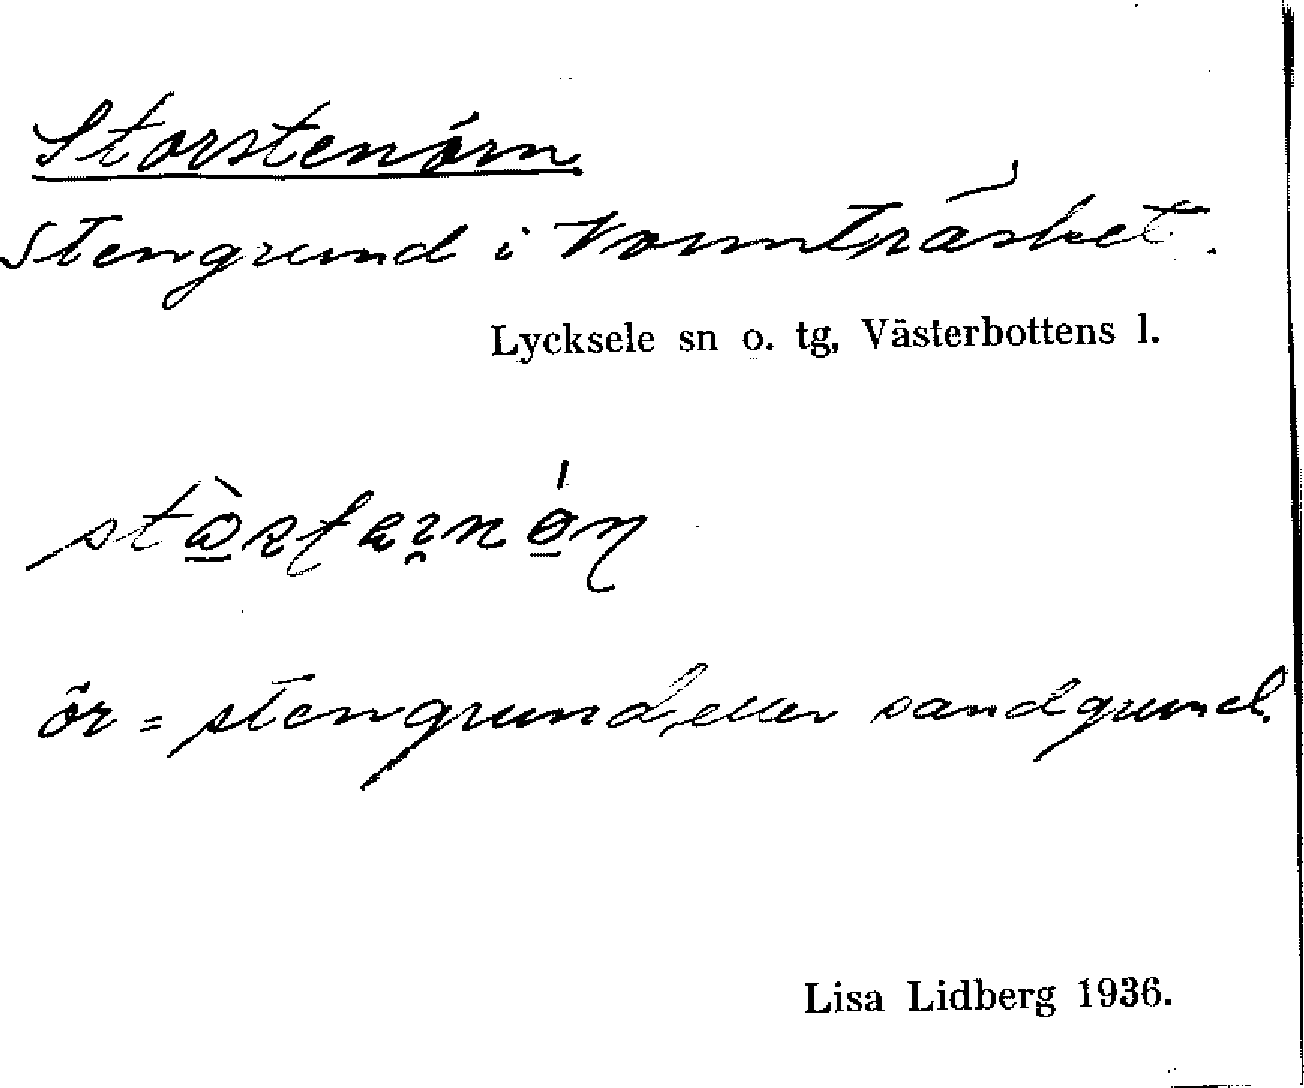 Storstenörn
Stengrund i Vormträsket.
Lycksele sn o. tg, Västerbottens l.
ör = stengrund, eller sandgrund.
Lisa Lidberg 1936.